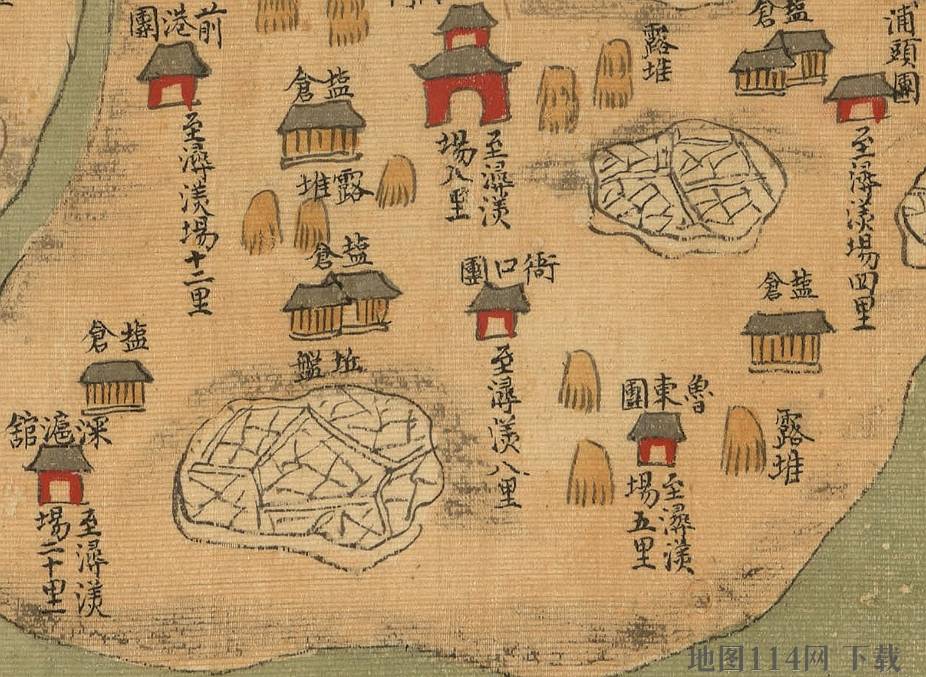 前港團
至潯渼場十二里
塩倉
露堆
至潯渼
場八里
露堆
塩倉
浦頭團
至潯渼場四里
塩倉
坵盤
衙口團
至潯渼八里
塩倉
塩倉
深滬舘
至潯渼
場二十里
魯東團
至潯渼
場五里
露堆
地图114网下载